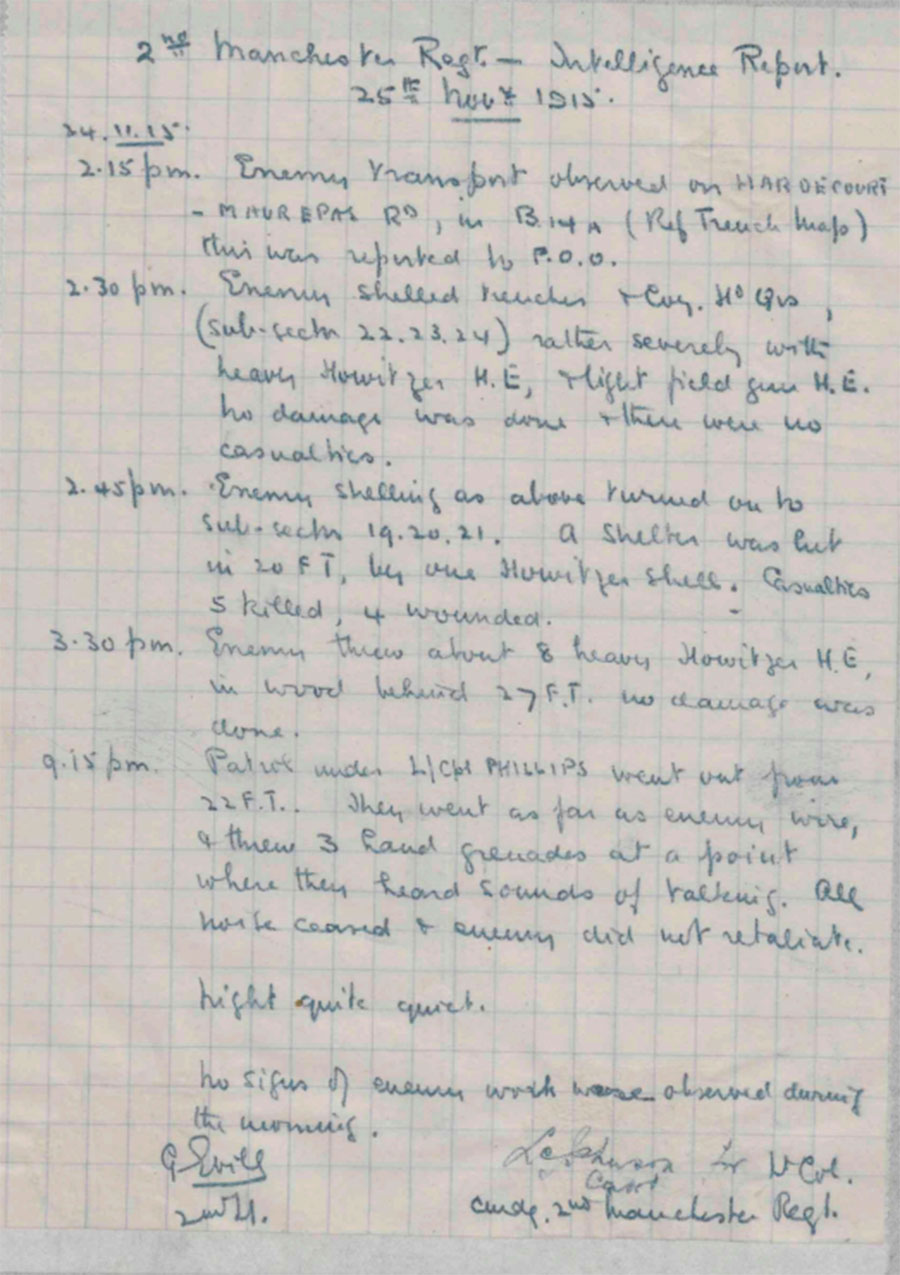 2nd Manchester Regt. — Intelligence Report.
25th Novr 1915.
24.11.15.
2.15 pm. Enemy transport observed on HARDECOURT
- MAUREPAS RD, in B.14A (Ref Trench Map)
this was reported to F.O.O.
2.30 pm. Enemy shelled trenches & Coy. Hd Qrs,
(sub-sectr 22.23.24) rather severely with
heavy Howitzer H.E, & light field gun H.E.
No damage was done & there were no
casualties.
2.45 pm. Enemy shelling as above turned on to
Sub-sectr 19.20.21. A shelter was hit
in 20 F.T, by one Howitzer shell. Casualties
5 killed, 4 wounded.
3.30 pm. Enemy threw about 8 heavy Howitzer H.E,
in wood behind 27 F.T. no damage was
done.
9.15 pm. Patrol under L/Cpl PHILLIPS went out from
22 F.T.. They went as far as enemy wire,
& threw 3 hand grenades at a point
where they heard sounds of talking. All
noise ceased & enemy did not retaliate.
Night quite quiet.
No signs of enemy work were observed during
the morning.
G Evills
2nd Lt.
Johnson for Lt Col.
Capt
Cmdg. 2nd Manchester Regt.